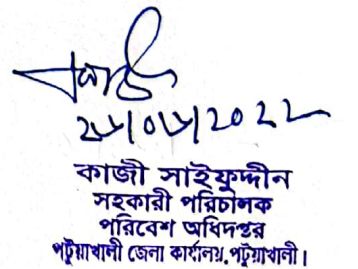 কাজী সাইফুদ্দীন
সহকারী পরিচালক
পরিবেশ অধিদপ্তর
পটুয়াখালী জেলা কার্যালয়, পটুয়াখালী।